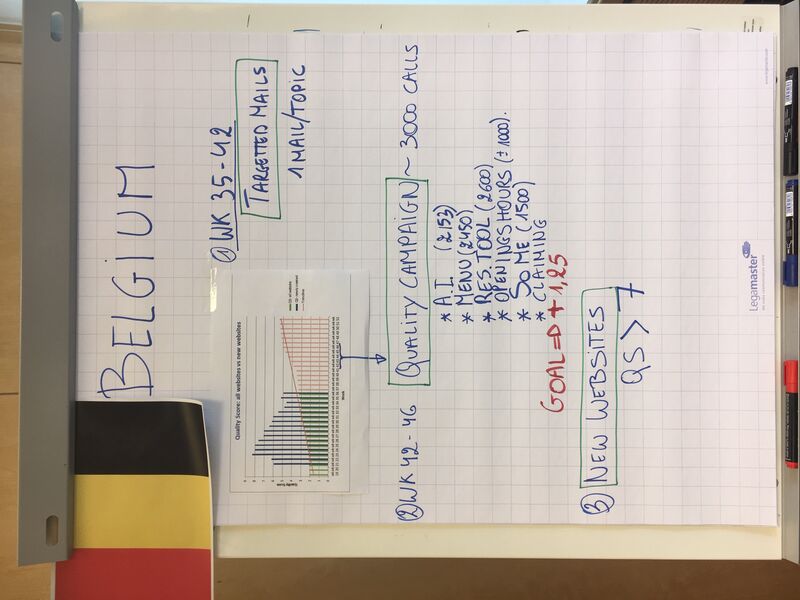 BELGIUM
① WK 35-42
TARGETTED MAILS
1 MAIL/TOPIC
Quality Score: all websites vs new websites
Quality Score
Week
② WK 42-46
QUALITY CAMPAIGN ~ 3000 CALLS
* A.I. (2153)
* MENU (2450)
* RES. TOOL (2600)
* OPENINGSHOURS (± 1000).
* SOME (1500)
* CLAIMING
GOAL => + 1,25
③ NEW WEBSITES
QS > 7
Legamaster